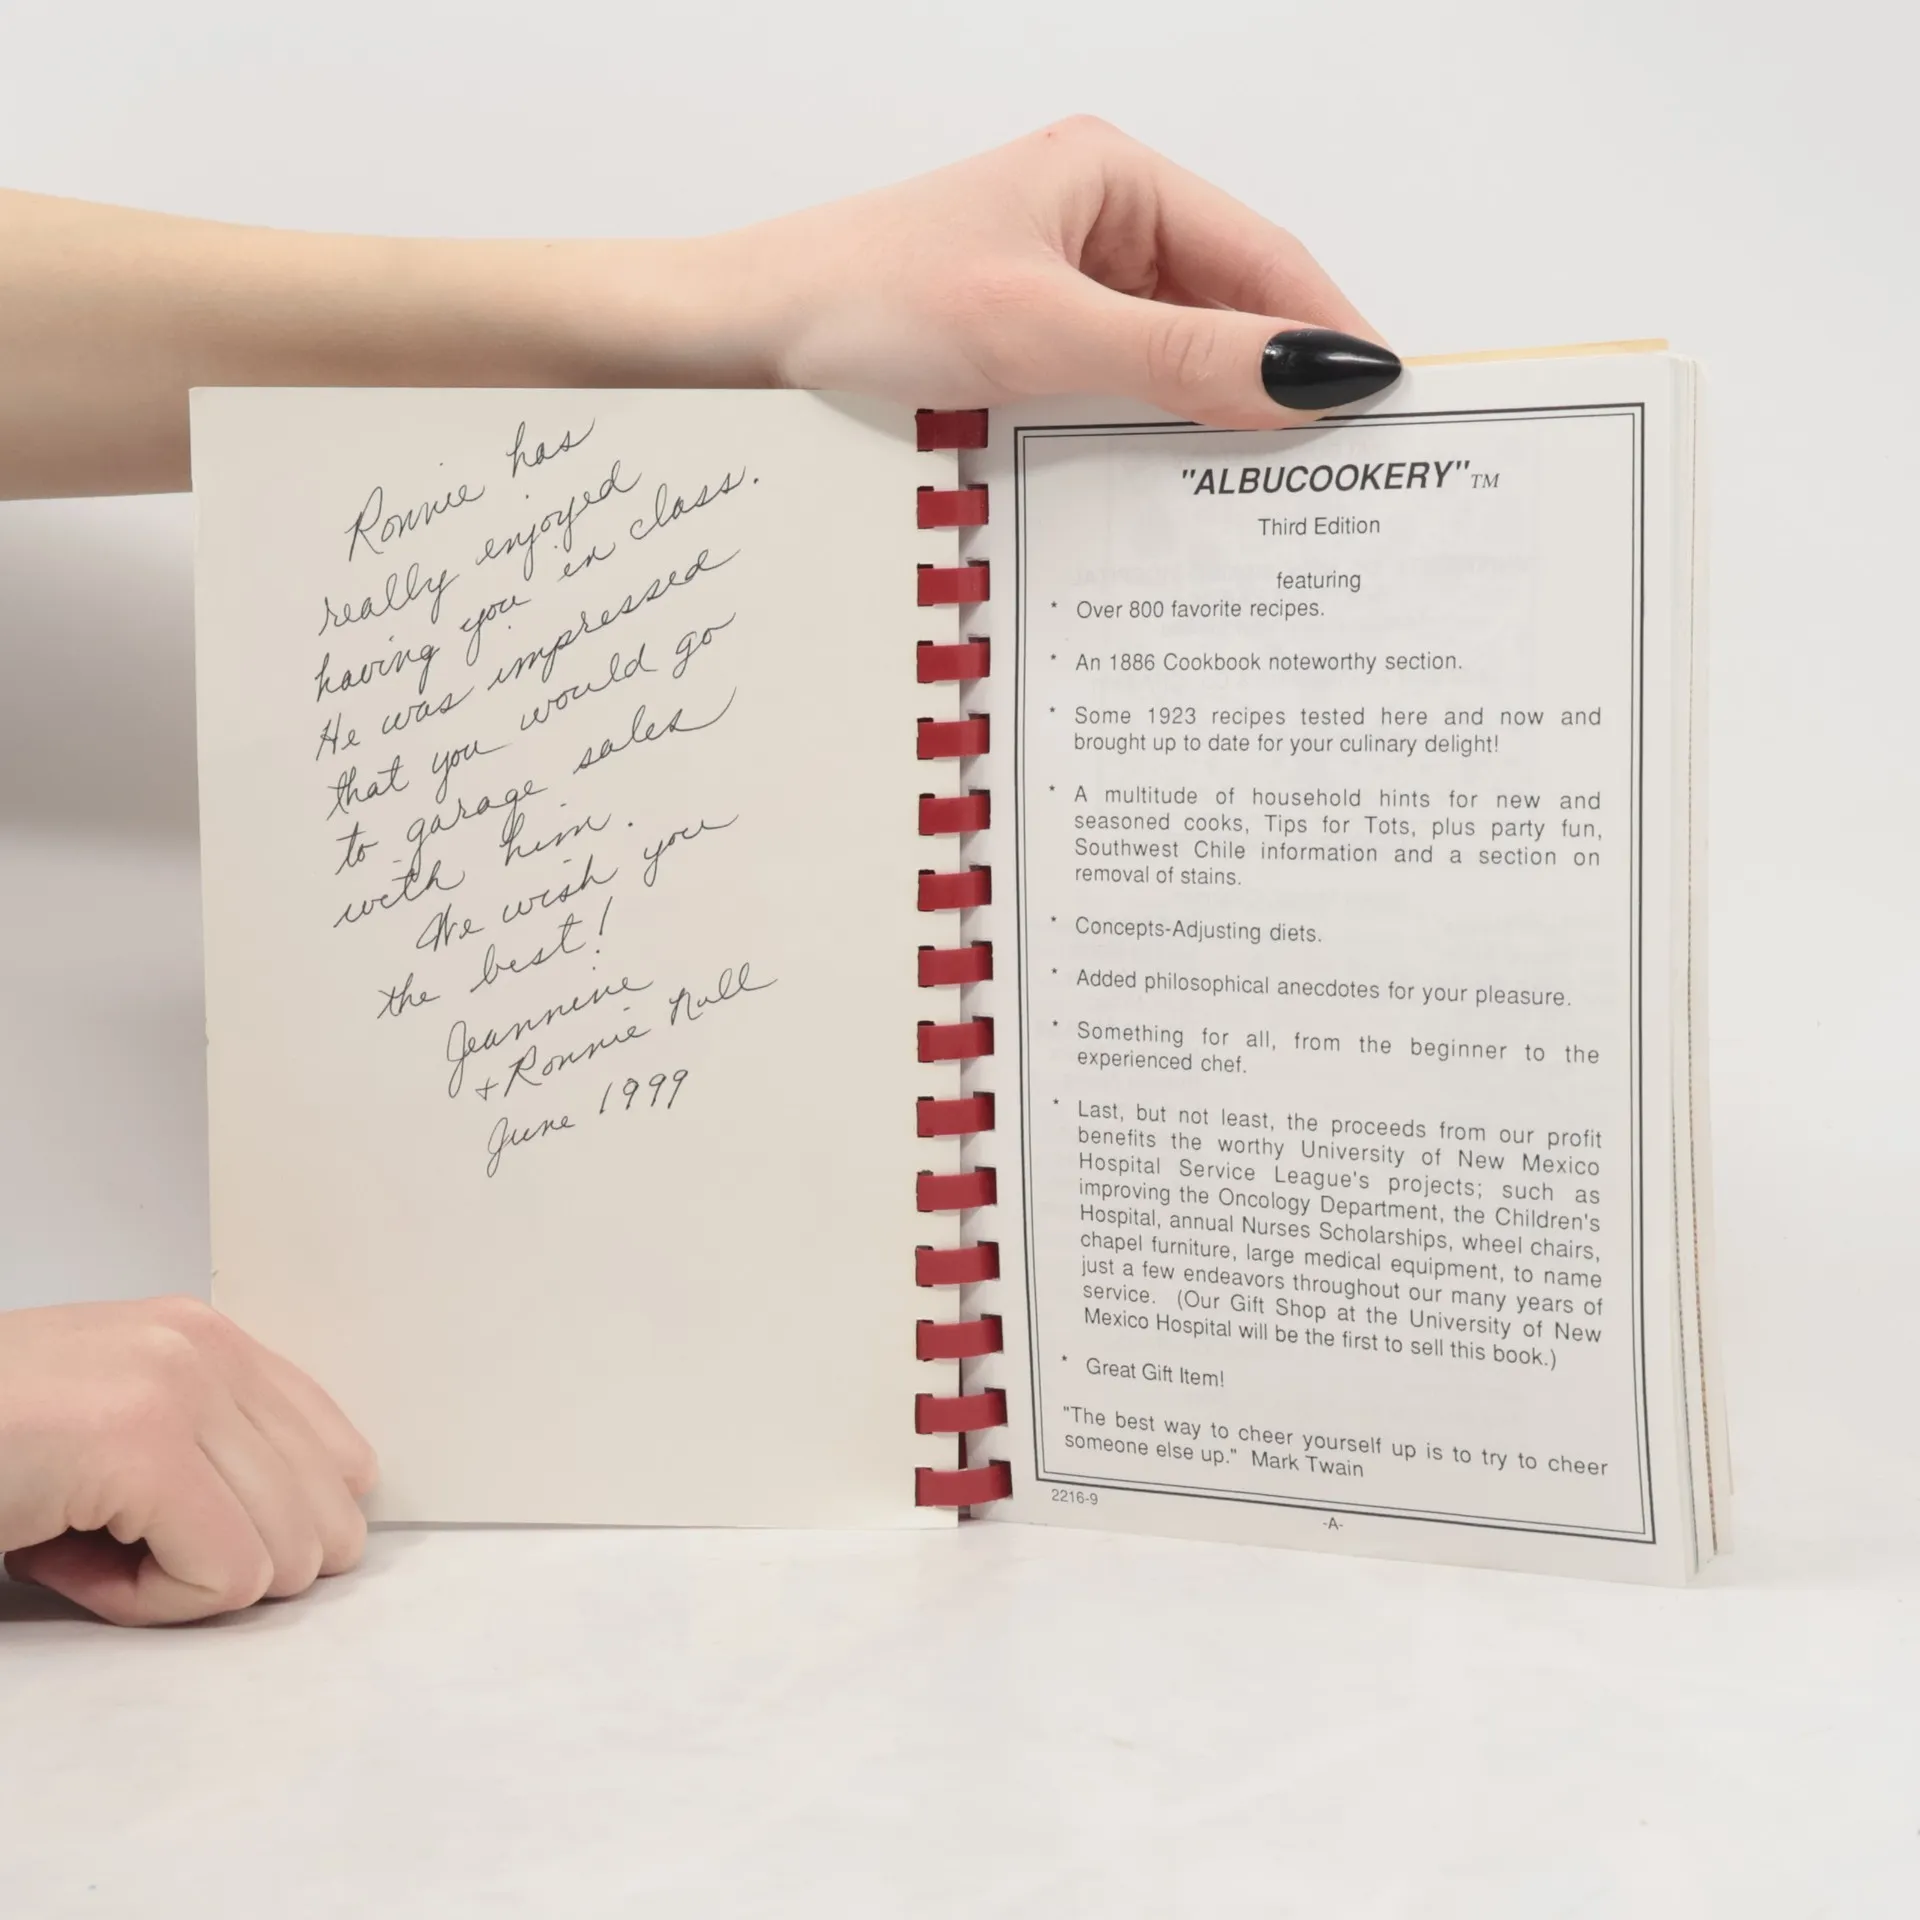 Ronnie has
really enjoyed
having you in class.
He was impressed
that you would go
to garage sales
with him.
We wish you
the best!
Jeannine
+ Ronnie Null
June 1999
"ALBUCOOKERY"TM
Third Edition
featuring
* Over 800 favorite recipes.
* An 1886 Cookbook noteworthy section.
* Some 1923 recipes tested here and now and
brought up to date for your culinary delight!
* A multitude of household hints for new and
seasoned cooks, Tips for Tots, plus party fun,
Southwest Chile information and a section on
removal of stains.
* Concepts-Adjusting diets.
* Added philosophical anecdotes for your pleasure.
* Something for all, from the beginner to the
experienced chef.
* Last, but not least, the proceeds from our profit
benefits the worthy University of New Mexico
Hospital Service League's projects; such as
improving the Oncology Department, the Children's
Hospital, annual Nurses Scholarships, wheel chairs,
chapel furniture, large medical equipment, to name
just a few endeavors throughout our many years of
service. (Our Gift Shop at the University of New
Mexico Hospital will be the first to sell this book.)
* Great Gift Item!
"The best way to cheer yourself up is to try to cheer
someone else up." Mark Twain
2216-9
-A-